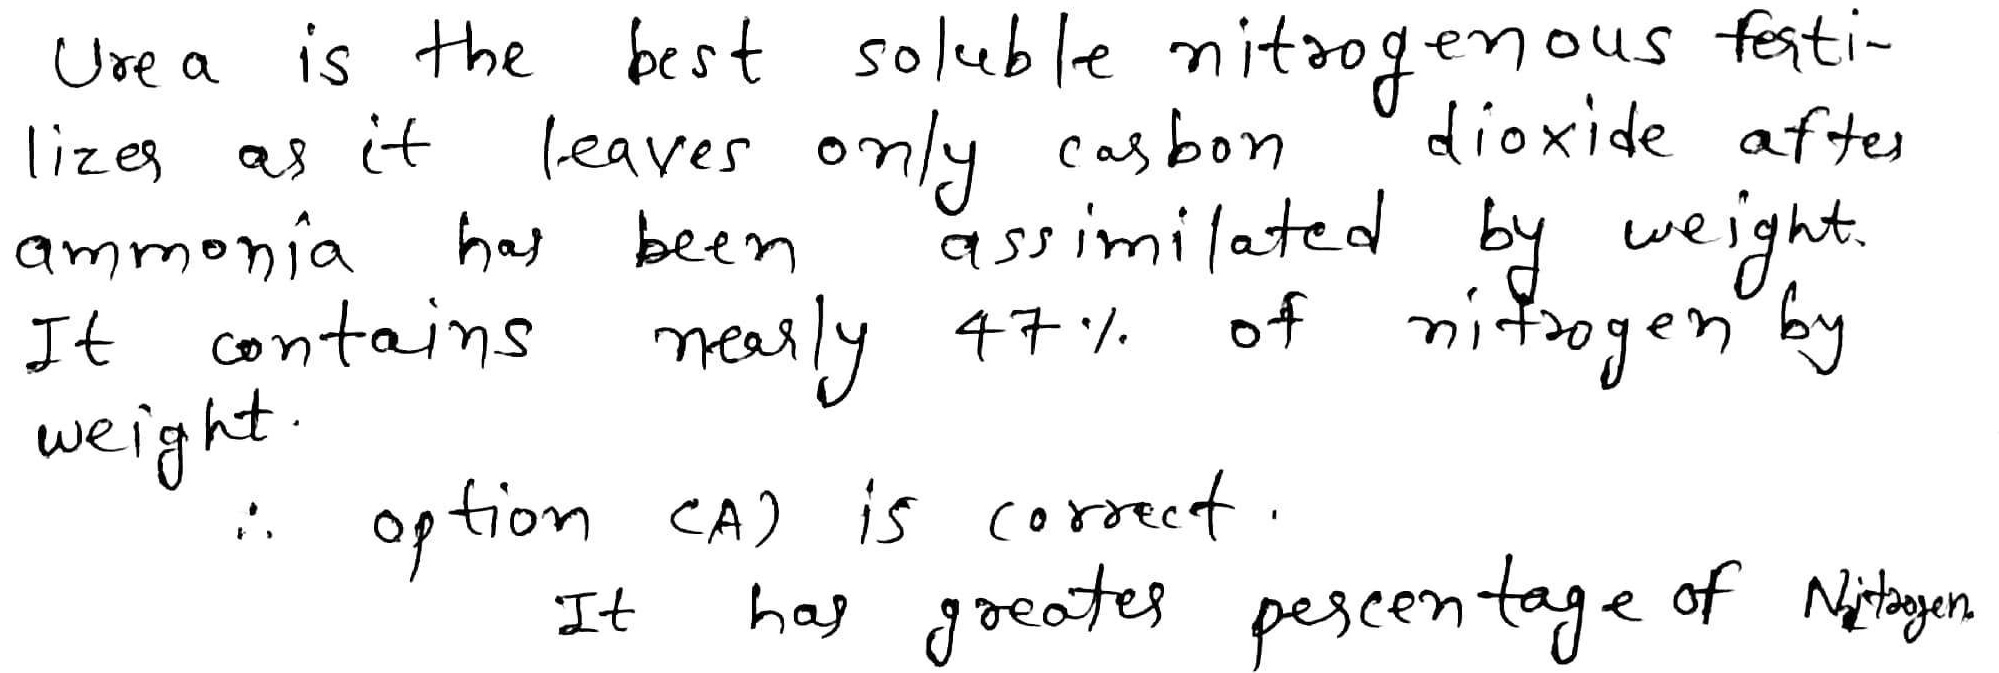 Urea is the best soluble nitrogenous ferti-
lizer as it leaves only carbon dioxide after
ammonia has been assimilated by weight.
It contains nearly 47% of nitrogen by
weight.
∴ option (A) is correct.
It has greater percentage of Nitrogen.